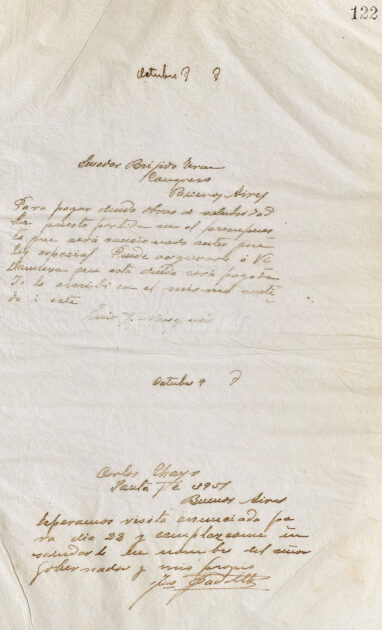 122
Octubre 8
Senador Brigido Teran
Congreso
Buenos Aires
Para pagar deuda obras de salubridad
ha puesto partida en el presupues
to que será sancionado antes que
ley especial. Puede asegurar á Vi
llanueva que esta deuda será pagada
Yo le escribi en el mismo senti
do á este
Luis F.
Octubre 9
Carlos Thays
Santa Fé 3951
Buenos Aires
Esperamos visita anunciada pa
ra dia 23 y complazcome en
saludarle en nombre del señor
Gobernador y mio propio
José Padilla